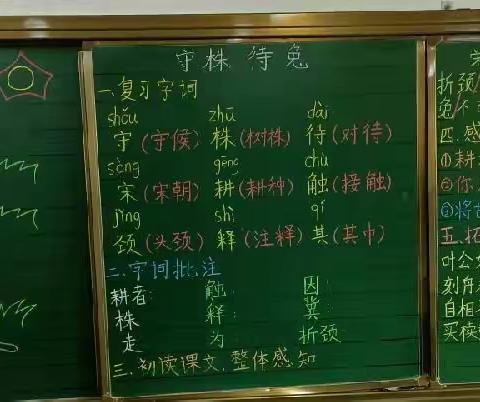 守株待兔
一、复习字词
shǒu zhū dài
守(守侯) 株(树株) 待(对待)
sòng gēng chù
宋(宋朝) 耕(耕种) 触(接触)
jǐng shì qí
颈(头颈) 释(注释) 其(其中)
二、字词批注
耕者: 触: 因:
株 释: 冀:
走 为 折颈
三、初读课文,整体感知
折颈
兔不
四、感
①耕
②你
③将
五、拓
叶公
刻舟
自相
买椟